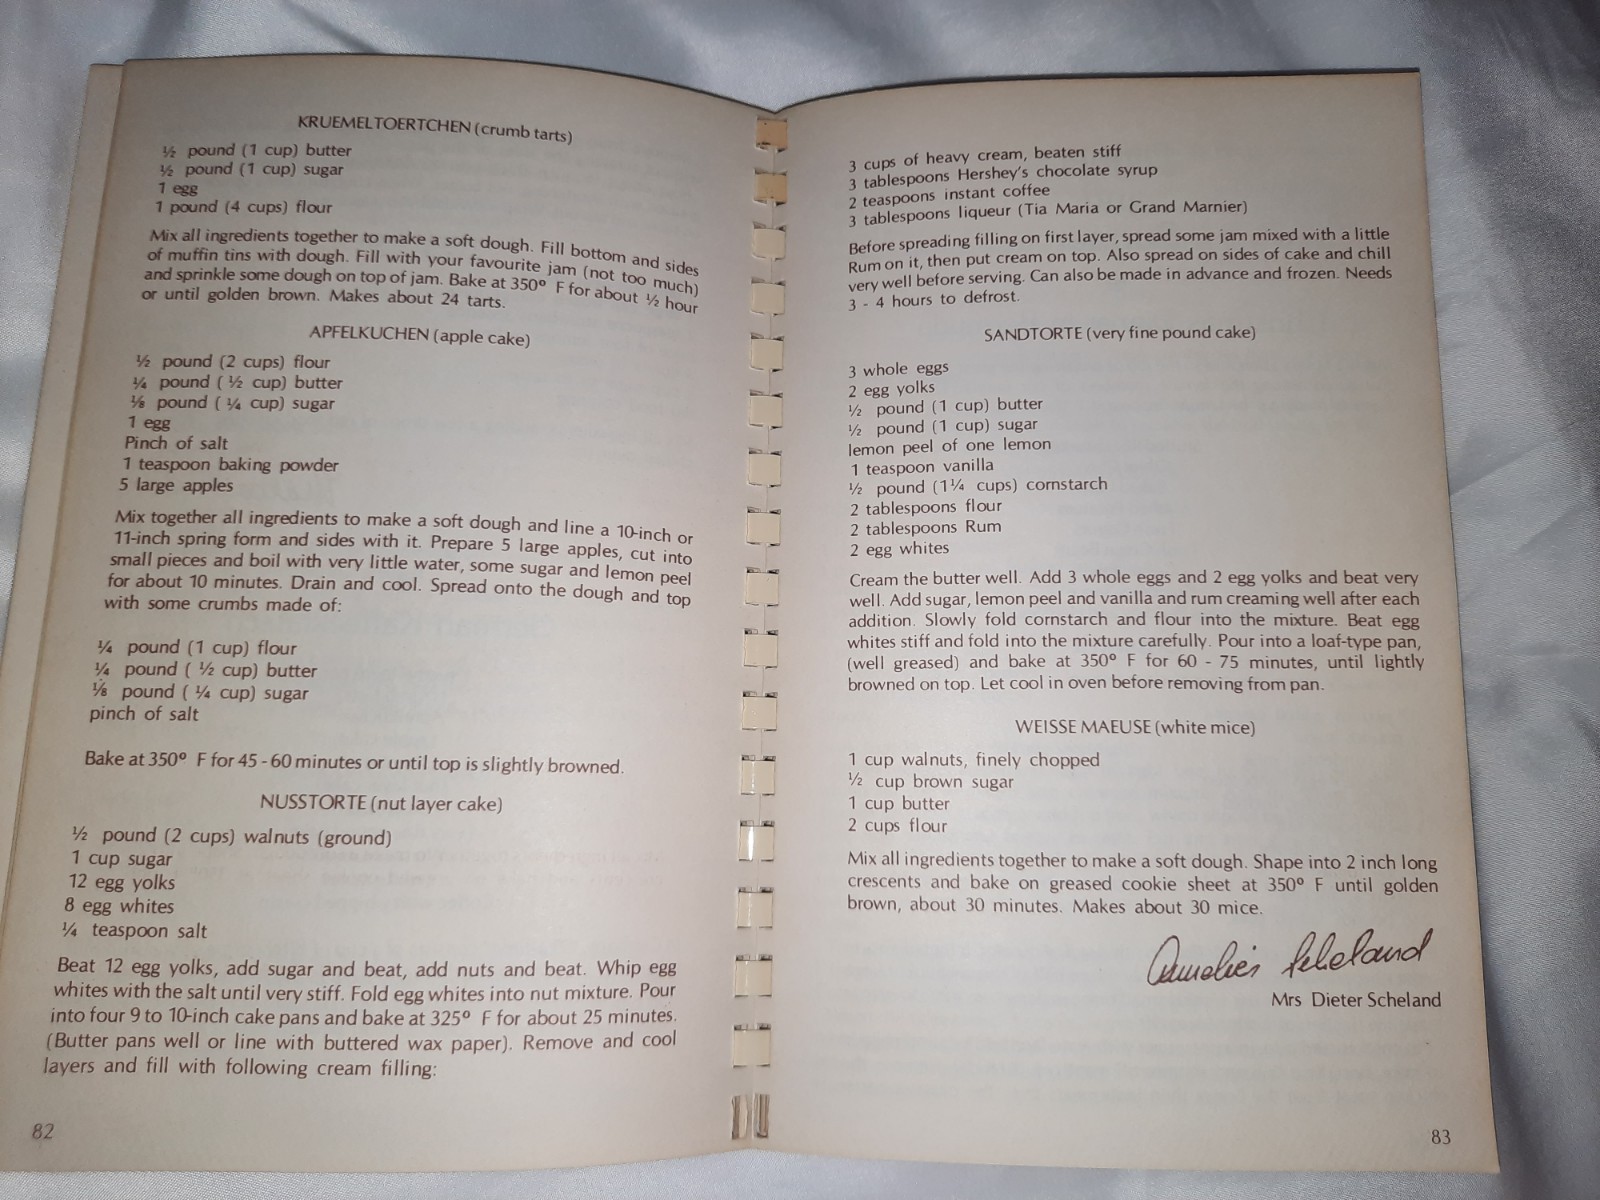 KRUEMELTOERTCHEN (crumb tarts)
½ pound (1 cup) butter
½ pound (1 cup) sugar
1 egg
1 pound (4 cups) flour
Mix all ingredients together to make a soft dough. Fill bottom and sides
of muffin tins with dough. Fill with your favourite jam (not too much)
and sprinkle some dough on top of jam. Bake at 350º F for about ½ hour
or until golden brown. Makes about 24 tarts.
APFELKUCHEN (apple cake)
½ pound (2 cups) flour
¼ pound ( ½ cup) butter
⅛ pound ( ¼ cup) sugar
1 egg
Pinch of salt
1 teaspoon baking powder
5 large apples
Mix together all ingredients to make a soft dough and line a 10-inch or
11-inch spring form and sides with it. Prepare 5 large apples, cut into
small pieces and boil with very little water, some sugar and lemon peel
for about 10 minutes. Drain and cool. Spread onto the dough and top
with some crumbs made of:
¼ pound (1 cup) flour
¼ pound ( ½ cup) butter
⅛ pound ( ¼ cup) sugar
pinch of salt
Bake at 350º F for 45 - 60 minutes or until top is slightly browned.
NUSSTORTE (nut layer cake)
½ pound (2 cups) walnuts (ground)
1 cup sugar
12 egg yolks
8 egg whites
¼ teaspoon salt
Beat 12 egg yolks, add sugar and beat, add nuts and beat. Whip egg
whites with the salt until very stiff. Fold egg whites into nut mixture. Pour
into four 9 to 10-inch cake pans and bake at 325º F for about 25 minutes.
(Butter pans well or line with buttered wax paper). Remove and cool
layers and fill with following cream filling:
82
3 cups of heavy cream, beaten stiff
3 tablespoons Hershey's chocolate syrup
2 teaspoons instant coffee
3 tablespoons liqueur (Tia Maria or Grand Marnier)
Before spreading filling on first layer, spread some jam mixed with a little
Rum on it, then put cream on top. Also spread on sides of cake and chill
very well before serving. Can also be made in advance and frozen. Needs
3 - 4 hours to defrost.
SANDTORTE (very fine pound cake)
3 whole eggs
2 egg yolks
½ pound (1 cup) butter
½ pound (1 cup) sugar
lemon peel of one lemon
1 teaspoon vanilla
½ pound (1¼ cups) cornstarch
2 tablespoons flour
2 tablespoons Rum
2 egg whites
Cream the butter well. Add 3 whole eggs and 2 egg yolks and beat very
well. Add sugar, lemon peel and vanilla and rum creaming well after each
addition. Slowly fold cornstarch and flour into the mixture. Beat egg
whites stiff and fold into the mixture carefully. Pour into a loaf-type pan,
(well greased) and bake at 350º F for 60 - 75 minutes, until lightly
browned on top. Let cool in oven before removing from pan.
WEISSE MAEUSE (white mice)
1 cup walnuts, finely chopped
½ cup brown sugar
1 cup butter
2 cups flour
Mix all ingredients together to make a soft dough. Shape into 2 inch long
crescents and bake on greased cookie sheet at 350º F until golden
brown, about 30 minutes. Makes about 30 mice.
Scheland
Mrs Dieter Scheland
83